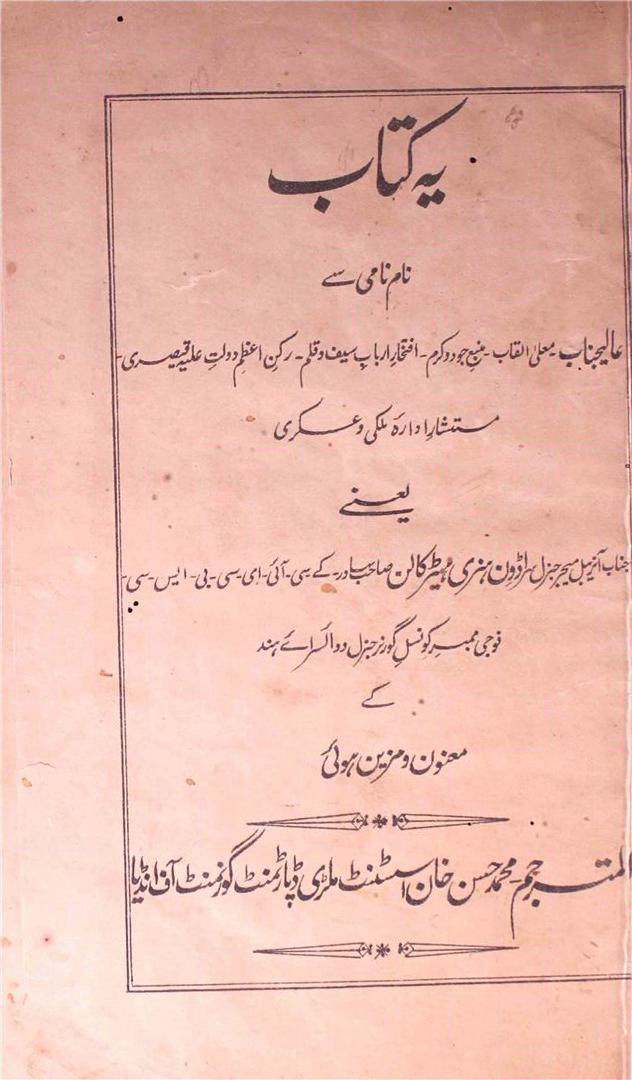 یہ کتاب
نام نامی سے
عالیجناب - معلیٰ القاب - منبع جود و کرم - افتخار ارباب سیف و قلم - رکن اعظم دولت علیہ قیصری -
مستشار ادارۂ ملکی و عسکری
یعنے
جناب آنریبل میجر جنرل سر اڈون ہنری ہیٹر کالن صاحب بہادر - کے - سی - آئی - ای - سی - بی - ایس - سی -
فوجی ممبر کونسل گورنر جنرل و وائسرائے ہند
کے
معنون و مزین ہوئی
المترجم - محمد حسن خان اسسٹنٹ ملٹری ڈپارٹمنٹ گورنمنٹ آف انڈیا